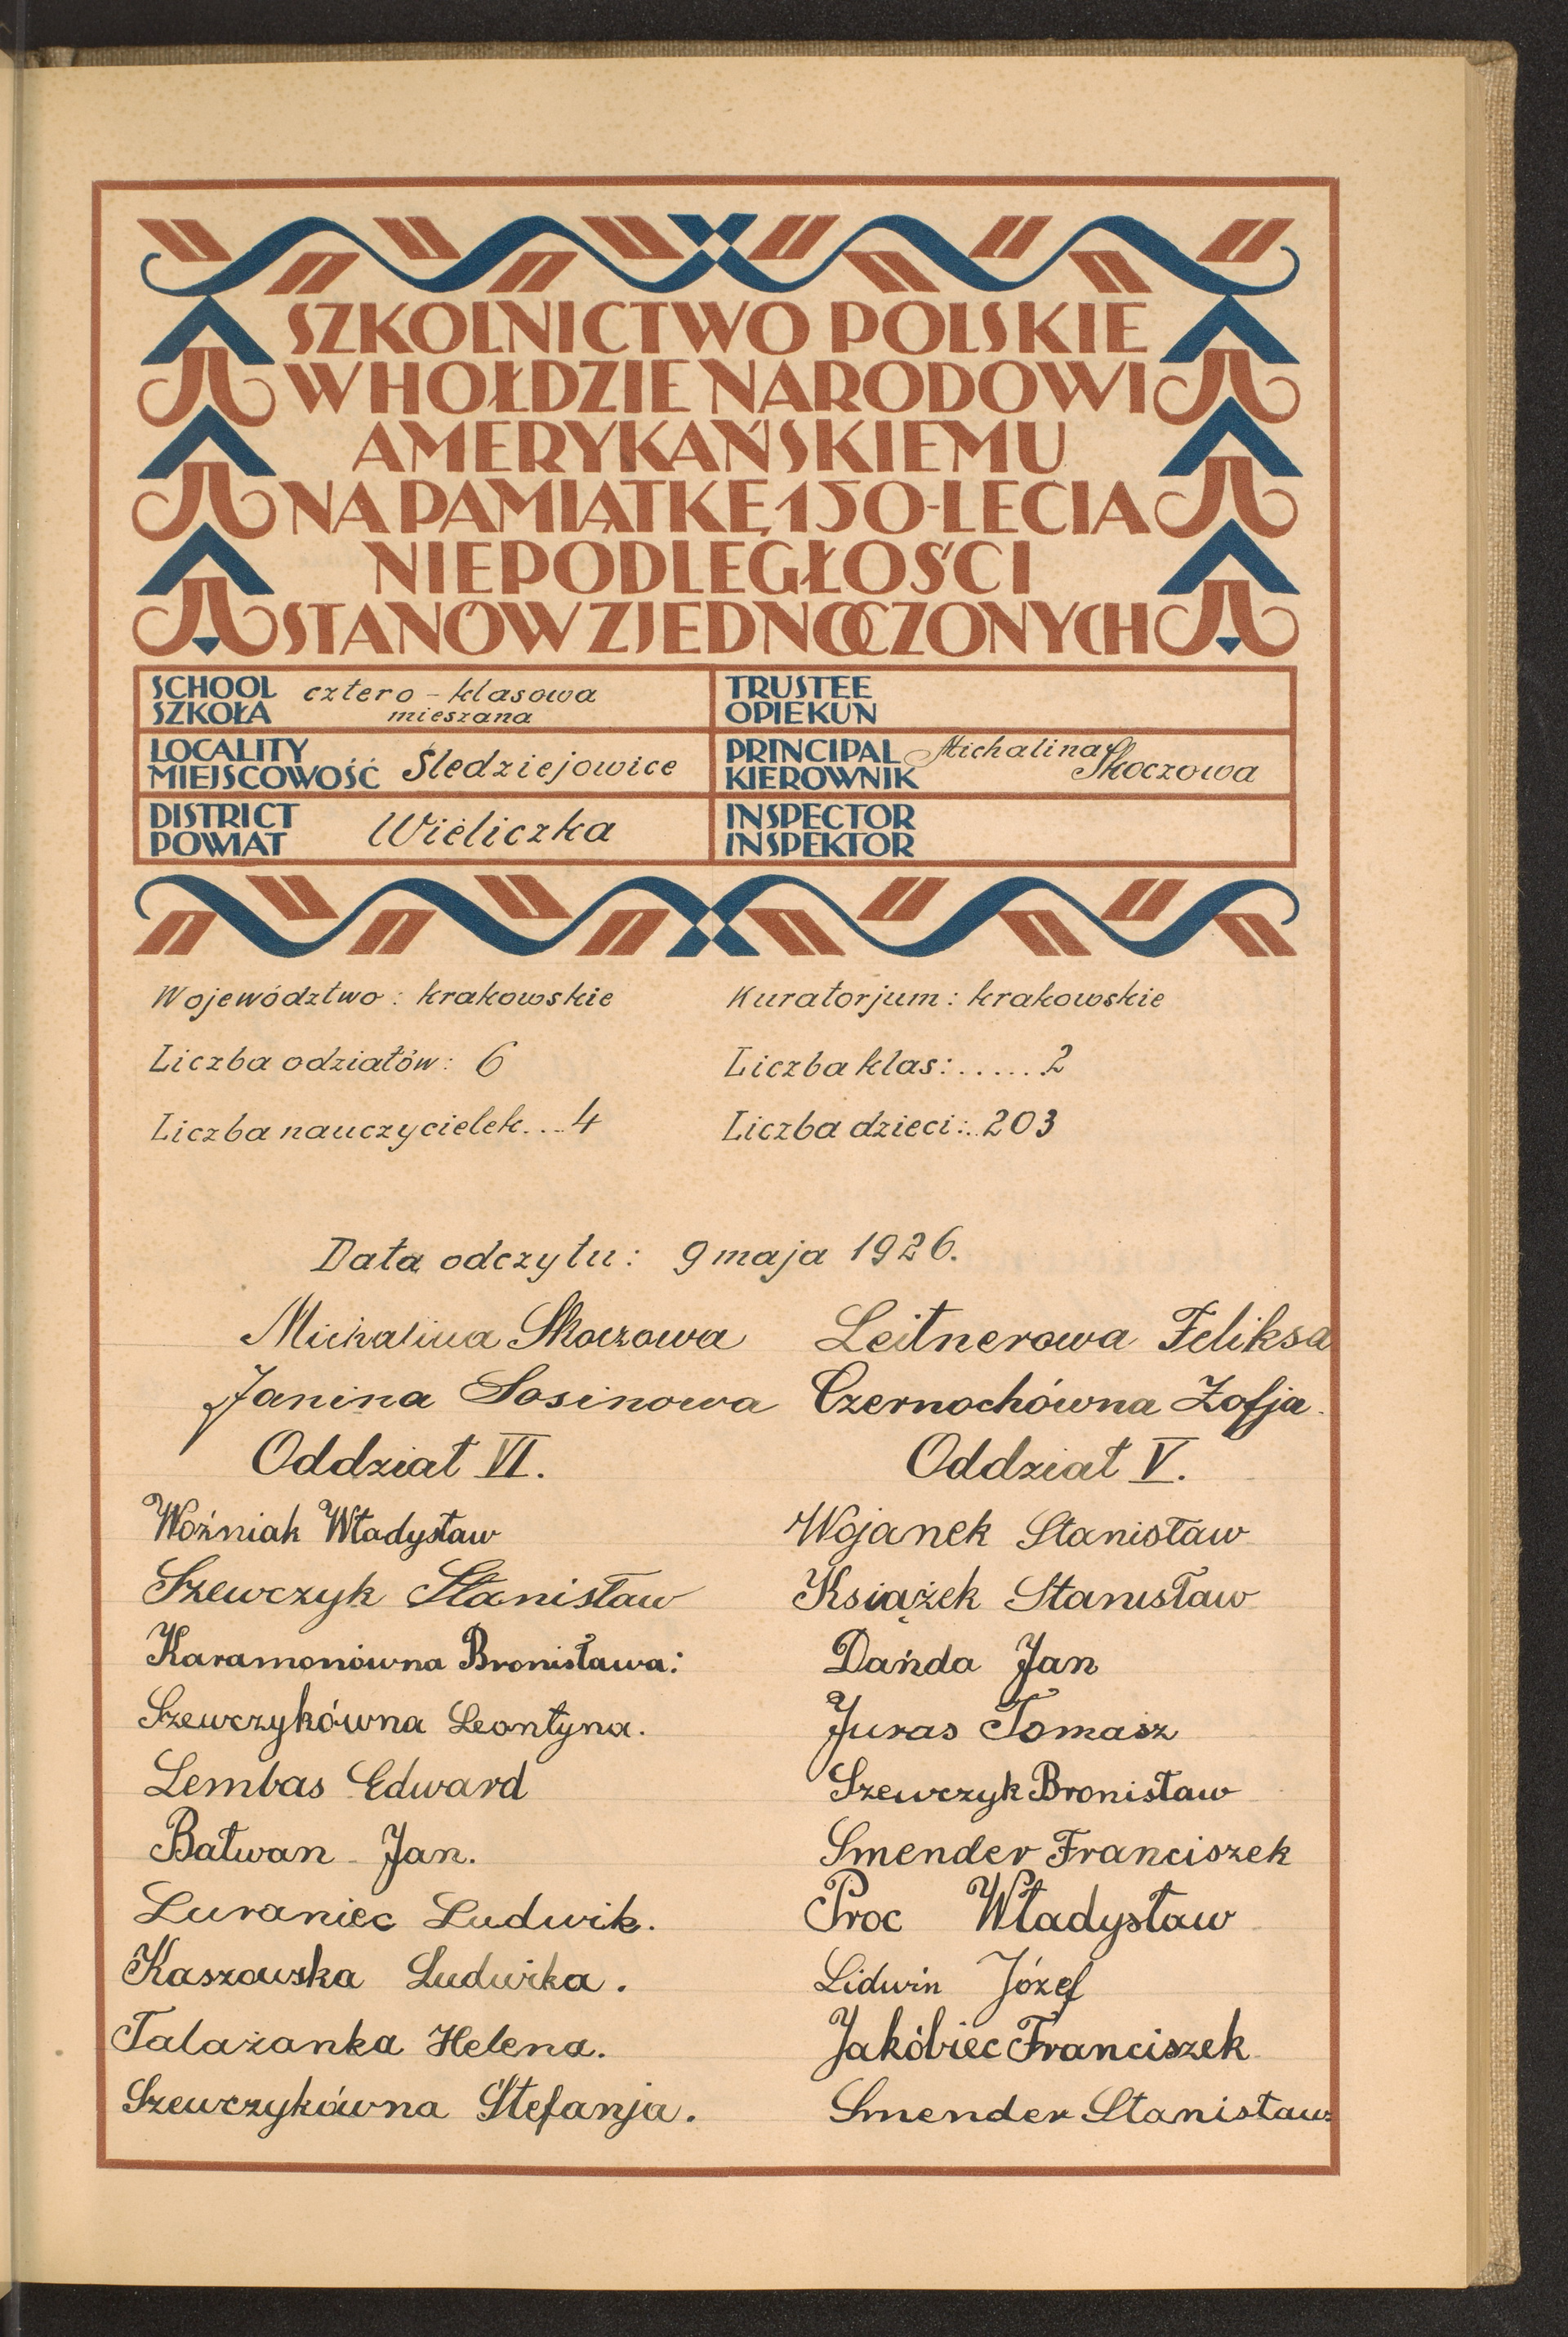 SZKOLNICTWO POLSKIE
W HOŁDZIE NARODOWI
AMERYKAŃSKIEMU
NA PAMIĄTKĘ 150-LECIA
NIEPODLEGŁOŚCI
STANÓW ZJEDNOCZONYCH
SCHOOL
SZKOŁA
cztero-klasowa
mieszana
TRUSTEE
OPIEKUN
LOCALITY
MIEJSCOWOŚĆ
Śledziejowice
PRINCIPAL
KIEROWNIK
Michalina
Skoczowa
DISTRICT
POWIAT
Wieliczka
INSPECTOR
INSPEKTOR
Województwo: krakowskie
Kuratorjum: krakowskie
Liczba odziałów: 6
Liczba klas:.....2
Liczba nauczycielek...4
Liczba dzieci:..203
Data odczytu: 9 maja 1926.
Michalina Skoczowa
Leitnerowa Feliksa
Janina Sosinowa
Czernochówna Zofja.
Oddział VI.
Oddział V.
Woźniak Władysław
Wojanek Stanisław
Szewczyk Stanisław
Książek Stanisław
Karamonówna Bronisława:
Dańda Jan
Szewczykówna Leontyna.
Juras Tomasz
Lembas Edward
Szewczyk Bronisław
Bałwan Jan.
Smender Franciszek
Luraniec Ludwik.
Proc Władysław
Kaszowska Ludwika.
Lidwin Józef
Talażanka Helena.
Jakóbiec Franciszek
Szewczykówna Stefanja.
Smender Stanisław